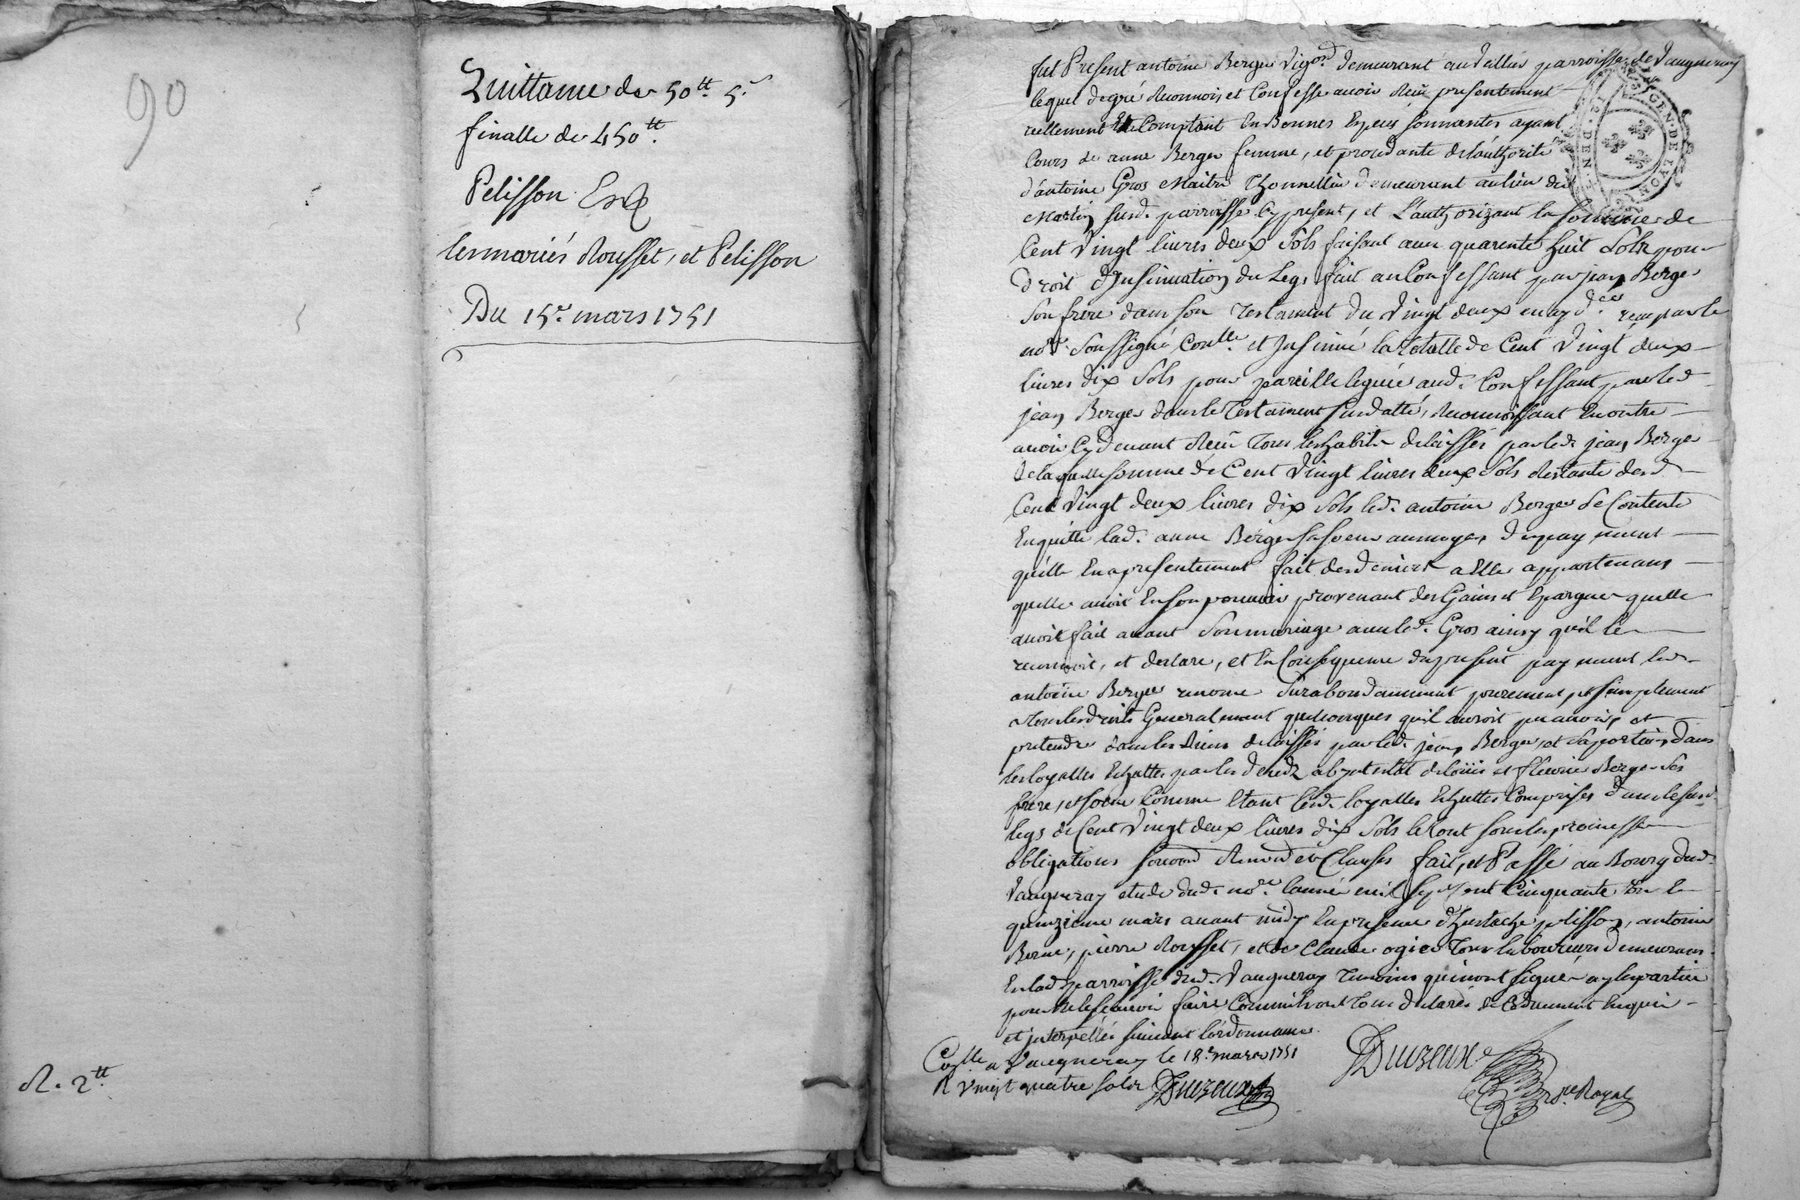 90
Quittance de 50tt 5s
finalle de 450tt
Pelisson
les mariés Rousset, et Pelisson
Du 15e mars 1751
R. 2tt
fut Present antoine Berger vigon demeurant audellié parroisse de Vaugneray
lequel de gré Reconnois et Confesse avoir Reçu presentement
reellement Et Comptant En Bonnes Especes sonnantes ayant
Cours de anne Berger femme, et procedante de l'authorité
d'antoine Gros Maitre Thonnellier demeurant au lieu du
Martin susd. parroisse Cy present, et L'authorizant la somme de
Cent Vingt livres deux Sols faisant avec quarente huit Sols pour
droit d'Insinuation du Legs fait au Confessant par jean Berger
son frere dans son Testament du Vingt deux may d. reçu par le
nore Soussigné Conlle et Insinué la totalle de Cent Vingt deux
livres dix Sols pour pareille leguée aud. Confessant par led
jean Berger dans le Testament susdatté, Reconnoissant En outre
avoir Cy devant Reçu Tous les habits delaissés par led. jean Berger
de laquelle somme de Cent Vingt livres deux Sols Restante desd
Cent Vingt deux livres dix Sols led. antoine Berger se Contente
En quitte lad. anne Berger sa soeur au moyen du payement
qu'elle En a presentement fait des deniers a Elle appartenans
qu'elle avoit En son pouvoir provenant des Gains et Epargnes quelle
avoit fait avant Son mariage avec led. Gros ainsy qu'il le
reconnoit, et declare, et En Consequence du present payement led
antoine Berger renonce Surabondamment purement, et simplement
a tous les droits Generalement quelconques qu'il auroit pu avoir, et
pretendre dans les Biens delaissés par led. jean Berger, et sa portion dans
les loyalles Echuttes par les deceds ab intestat de loüis et fleurie Berger ses
frere, et soeur Comme Etant lesd. loyalles Echuttes Comprises dans le susd
legs de Cent Vingt deux livres dix Sols le tout sous les promesses
obligations soumd Renond et Clauses fait, et Passé au Bourg dud.
Vaugneray etude dud. nore l'année mil sept Cent Cinquante Un le
quinzieme mars avant midy En presence d'Eustache pelisson, antoine
Berne, pierre Rousset, et de Claude ogier Tous laboureurs demeurans
En lad parroisse dud. Vaugneray Temoins qui n'ont signé ny les parties
pour ne le sçavoir faire Comme ils ont Tous declaré de Ce dument Enquis
et interpellés suivant l'ordonnance.
Conlle a Vaugneray le 18e mars 1751
R vingt quatre sols
nre Royal
GEN · DE LYON